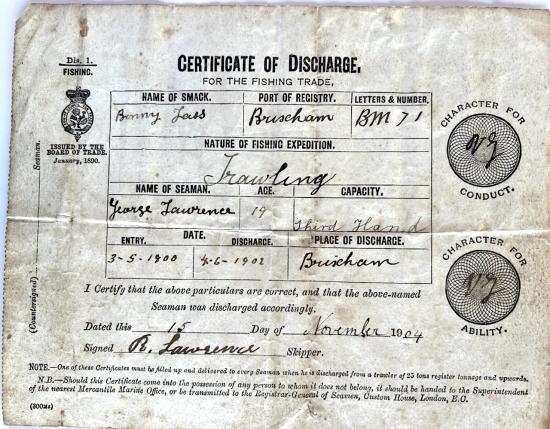 Dis. 1.
FISHING.
CERTIFICATE OF DISCHARGE,
FOR THE FISHING TRADE,
NAME OF SMACK.
PORT OF REGISTRY.
LETTERS & NUMBER.
Bonny Lass
Brixham
BM 71
ISSUED BY THE
BOARD OF TRADE.
January, 1890.
NATURE OF FISHING EXPEDITION.
Trawling
NAME OF SEAMAN.
AGE.
CAPACITY.
George Lawrence
19
Third Hand
DATE.
ENTRY.
DISCHARGE.
PLACE OF DISCHARGE.
3-5-1900
4-6-1902
Brixham
CHARACTER FOR
VG
CONDUCT.
CHARACTER FOR
VG
ABILITY.
Seaman.
(Countersigned)
I Certify that the above particulars are correct, and that the above-named
Seaman was discharged accordingly.
Dated this 15 Day of November 1904
Signed R. Lawrence Skipper.
NOTE.—One of these Certificates must be filled up and delivered to every Seaman when he is discharged from a trawler of 25 tons register tonnage and upwards.
N.B.—Should this Certificate come into the possession of any person to whom it does not belong, it should be handed to the Superintendent
of the nearest Mercantile Marine Office, or be transmitted to the Registrar-General of Seamen, Custom House, London, E.C.